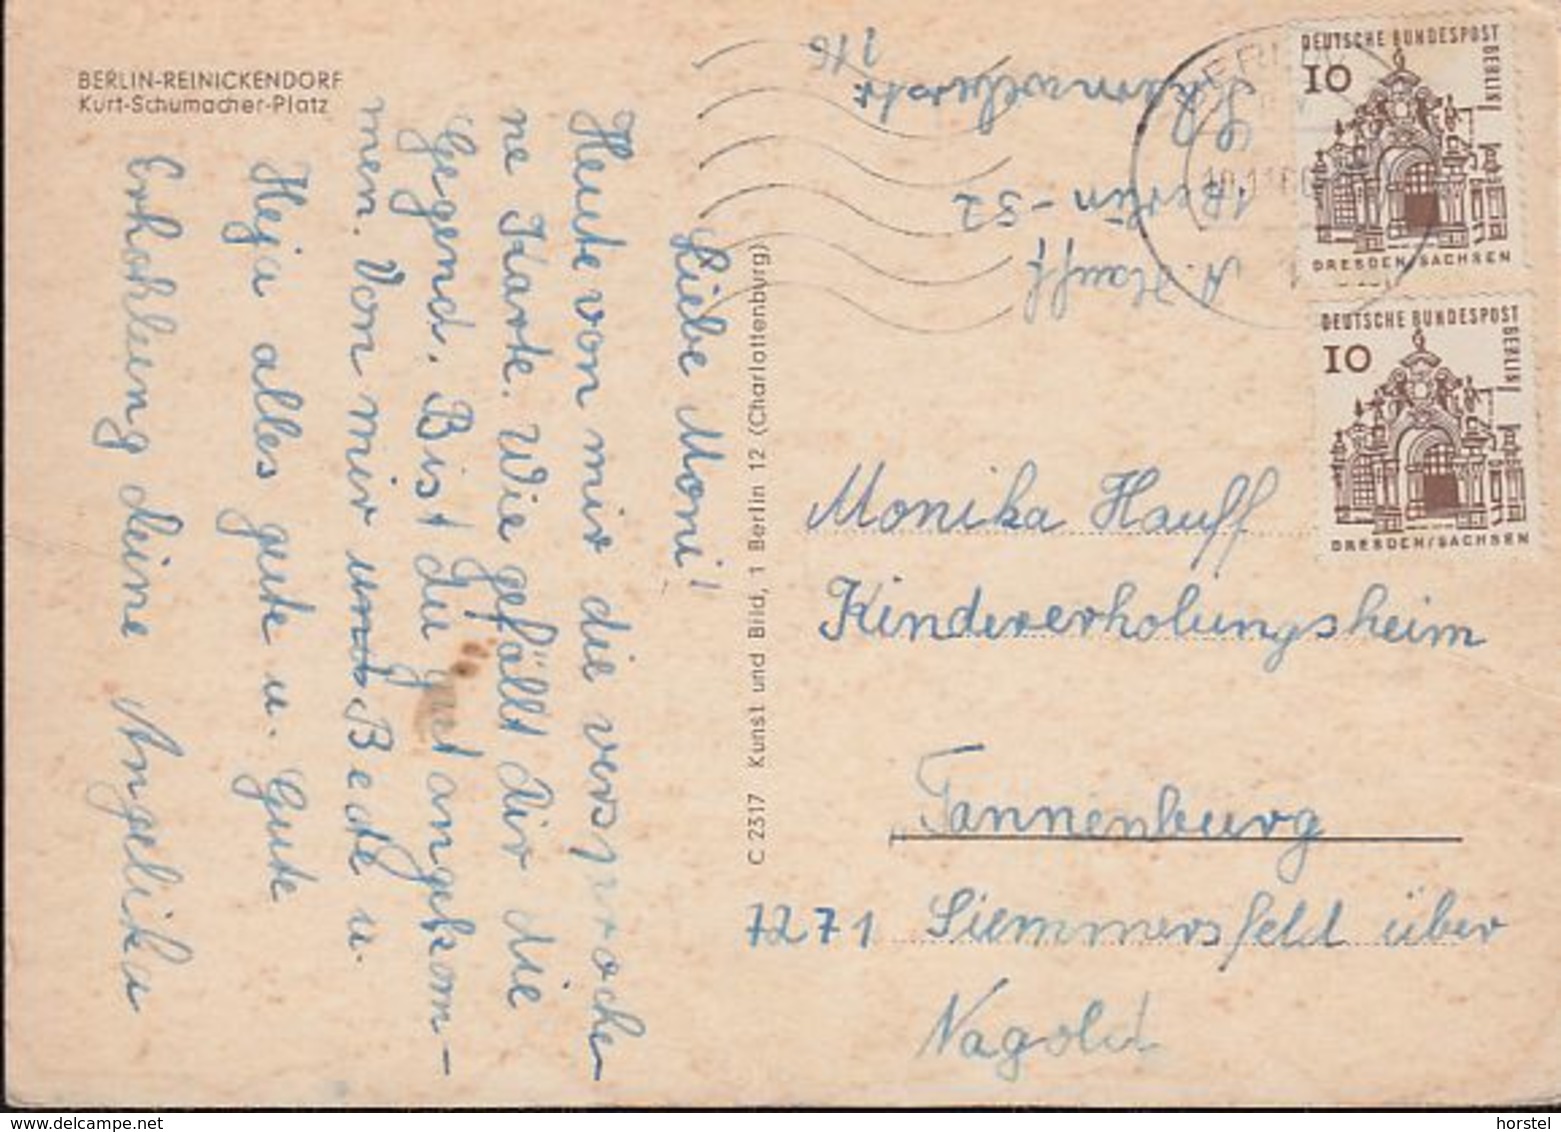 BERLIN-REINICKENDORF
Kurt-Schumacher-Platz
Liebe Moni!
Heute von mir die versproche-
ne Karte. Wie gefällt dir die
Gegend. Bist du gut angekom-
men. Von mir und Bede u.
Heja alles gute u. Gute
Erhohlung deine Angelika
C 2317 Kunst und Bild, 1 Berlin 12 (Charlottenburg)
A. Hauff
1 Berlin - 52
DEUTSCHE BUNDESPOST
BERLIN
10
DRESDEN/SACHSEN
DEUTSCHE BUNDESPOST
BERLIN
10
DRESDEN/SACHSEN
Monika Hauff
Kindererholungsheim
Tannenburg
7271 Siemmersfeld über
Nagold
www.delcampe.net
horstel